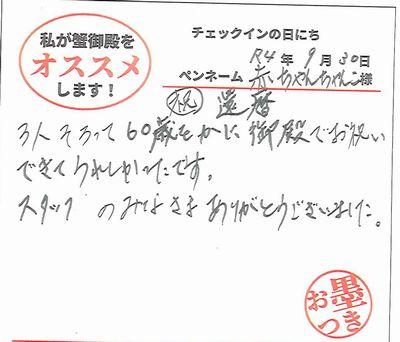 私が蟹御殿を
オススメ
します！
チェックインの日にち
R4年9月30日
ペンネーム 赤ちゃんちゃんこ様
祝 還暦
3人そろって60歳をかに御殿でお祝い
できてうれしかったです。
スタッフのみなさまありがとうございました。
お墨つき